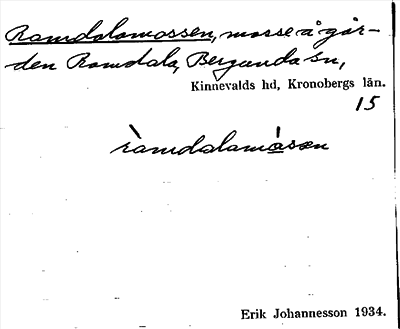 Ramdalamossen, mosse å går-
den Ramdala, Bergunda sn,
Kinnevalds hd, Kronobergs län.
15
ràmdalamåsen
Erik Johannesson 1934.